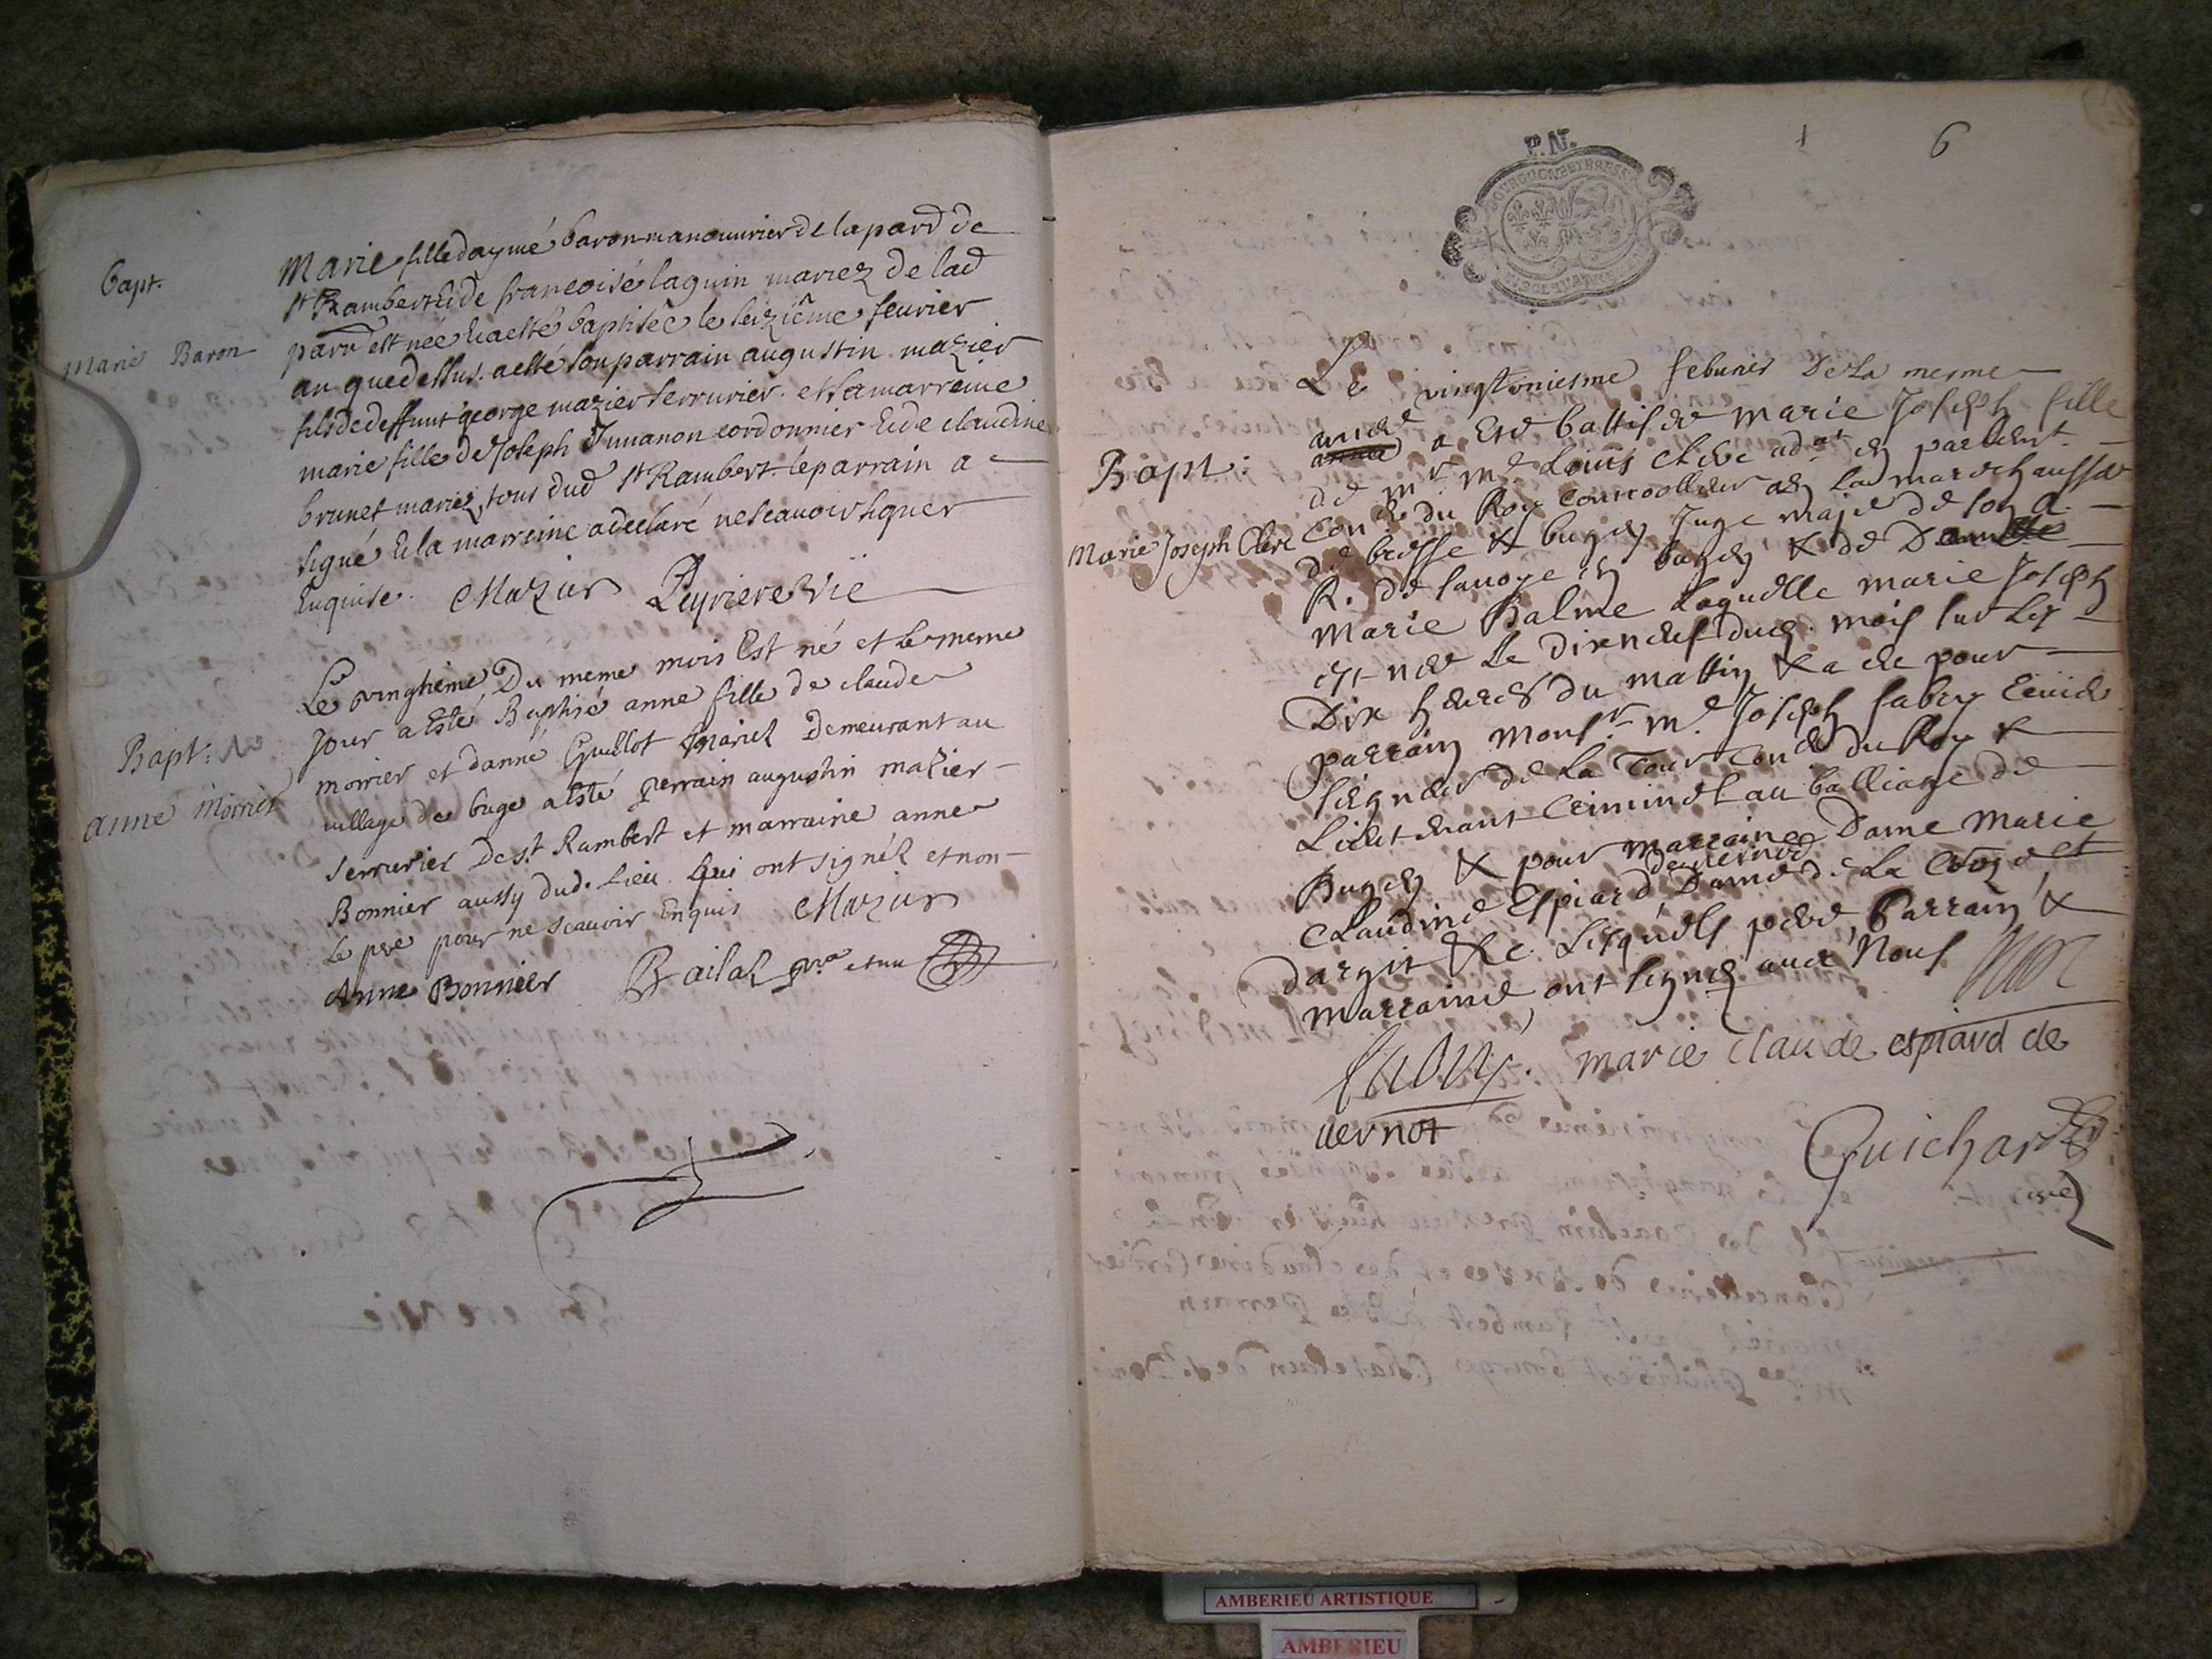 Bapt.
Marie Baron
Marie fille d'aymé baron manouvrier de la parr de
St Rambert Et de francoise laguin mariez de lad
parr est née Et a esté baptisée le seizième feurier
an que dessus. a esté son parrain augustin mazier
fils de deffunt george mazier serrurier. et sa marreine
marie fille de Joseph Juuanon cordonnier Et de claudine
brunet mariez, tous dud St Rambert. le parrain a
signé Et la marreine a declaré ne scauoir signer
Enquise. Mazier Peyriere vic
Bapt:
anne Moirier
Le vingtieme Du meme mois Est né et le meme
Jour a esté Baptisé anne fille de claude
moirier et d'anne Guillot mariez Demeurant au
village de buges a esté perrain augustin mazier
serrurier De st Rambert et marraine anne
Bonnier aussy dud. Lieu Qui ont signéz et non
le pere pour ne scauoir Enquis Mazier
Anne Bonnier
P.N.
1 6
Bapt:
Marie Joseph Clerc
Le vingtoniesme feburier De La mesme
année
année a Eté battisée Marie Joseph fille
de Mr Me Louis Clerc adat en parlement
Coner du Roy Controolleur en La marechaussée
de bresse & bugey Juge maje de son a.
R. de sauoye en bugey & de Damlle
Marie Balme Laquelle Marie Joseph
est née Le dixneuf dud. mois sur Les
Dix heures du mattin & a eu pour
parrain Monsr Me Joseph fabry Ecuier
seigneur de La Tour Coner du Roy &
Lieutenant Criminel au balliage de
Bugey & pour marraine Dame Marie
de vernod
Claudine Espiard, Dame de La
dargit &c Lesquels pere, Parrain, &
Marraine, ont signés auec Nous
fabry. marie claude espiard de
vernot
Guichard